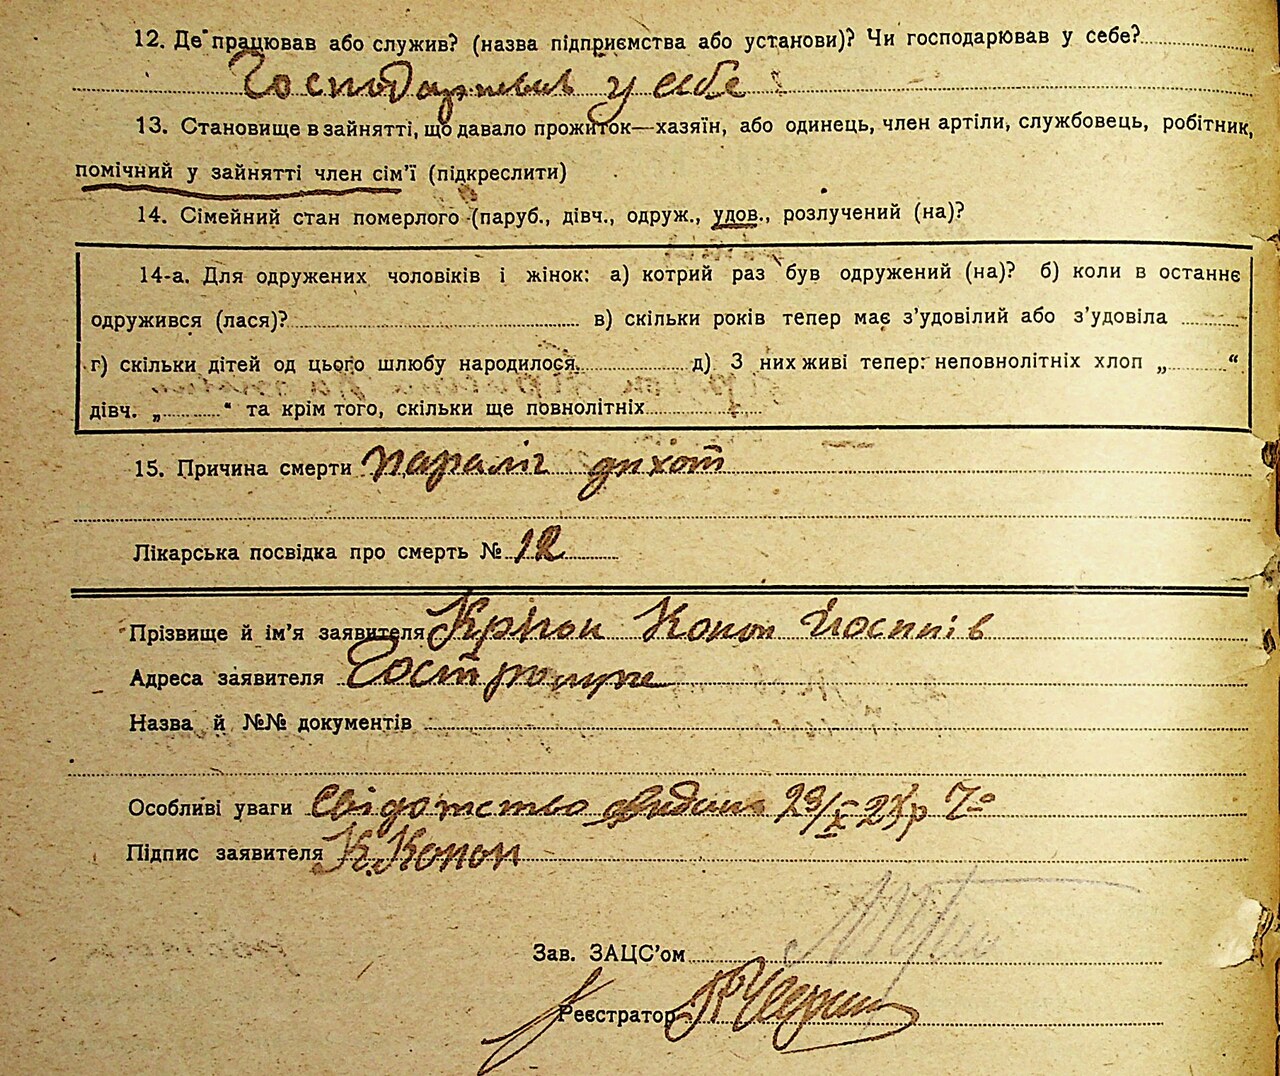 12. Де працював або служив? (назва підприємства або установи)? Чи господарював у себе?
Господарював у себе
13. Становище в зайнятті, що давало прожиток—хазяїн, або одинець, член артіли, службовець, робітник,
помічний у зайнятті член сім'ї (підкреслити)
14. Сімейний стан померлого (паруб., дівч., одруж., удов., розлучений (на)?
14-а. Для одружених чоловіків і жінок: а) котрий раз був одружений (на)? б) коли в останнє
одружився (лася)? в) скільки років тепер має з'удовілий або з'удовіла
г) скільки дітей од цього шлюбу народилося д) З них живі тепер: неповнолітніх хлоп „ “
дівч. „ “ та крім того, скільки ще повнолітніх
15. Причина смерти параліч
Лікарська посвідка про смерть № 12
Прізвище й ім'я заявителя Конон
Адреса заявителя
Назва й №№ документів
Особливі уваги Свідотство видана 29/X
Підпис заявителя К. Конон
Зав. ЗАЦС'ом
Реєстратор